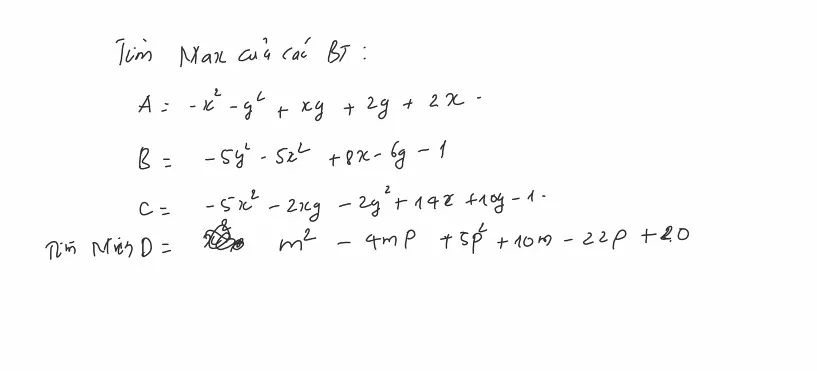 Tìm Max của các BT :
A = -x² - y² + xy + 2y + 2x .
B = -5y² - 5x² + 8x - 6y - 1
C = -5x² - 2xy - 2y² + 14x + 10y - 1 .
Tìm Min D = m² - 4mp + 5p² + 10m - 22p + 20